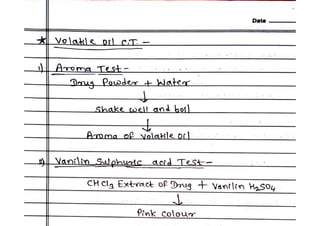 Date
* Volatile oil C.T -
1) Aroma Test -
Drug Powder + Water
↓
Shake well and boil
↓
Aroma of Volatile oil
2) Vanilin Sulphuric acid Test -
CHCl3 Extract of Drug + Vanilin H2SO4
↓
Pink Colour